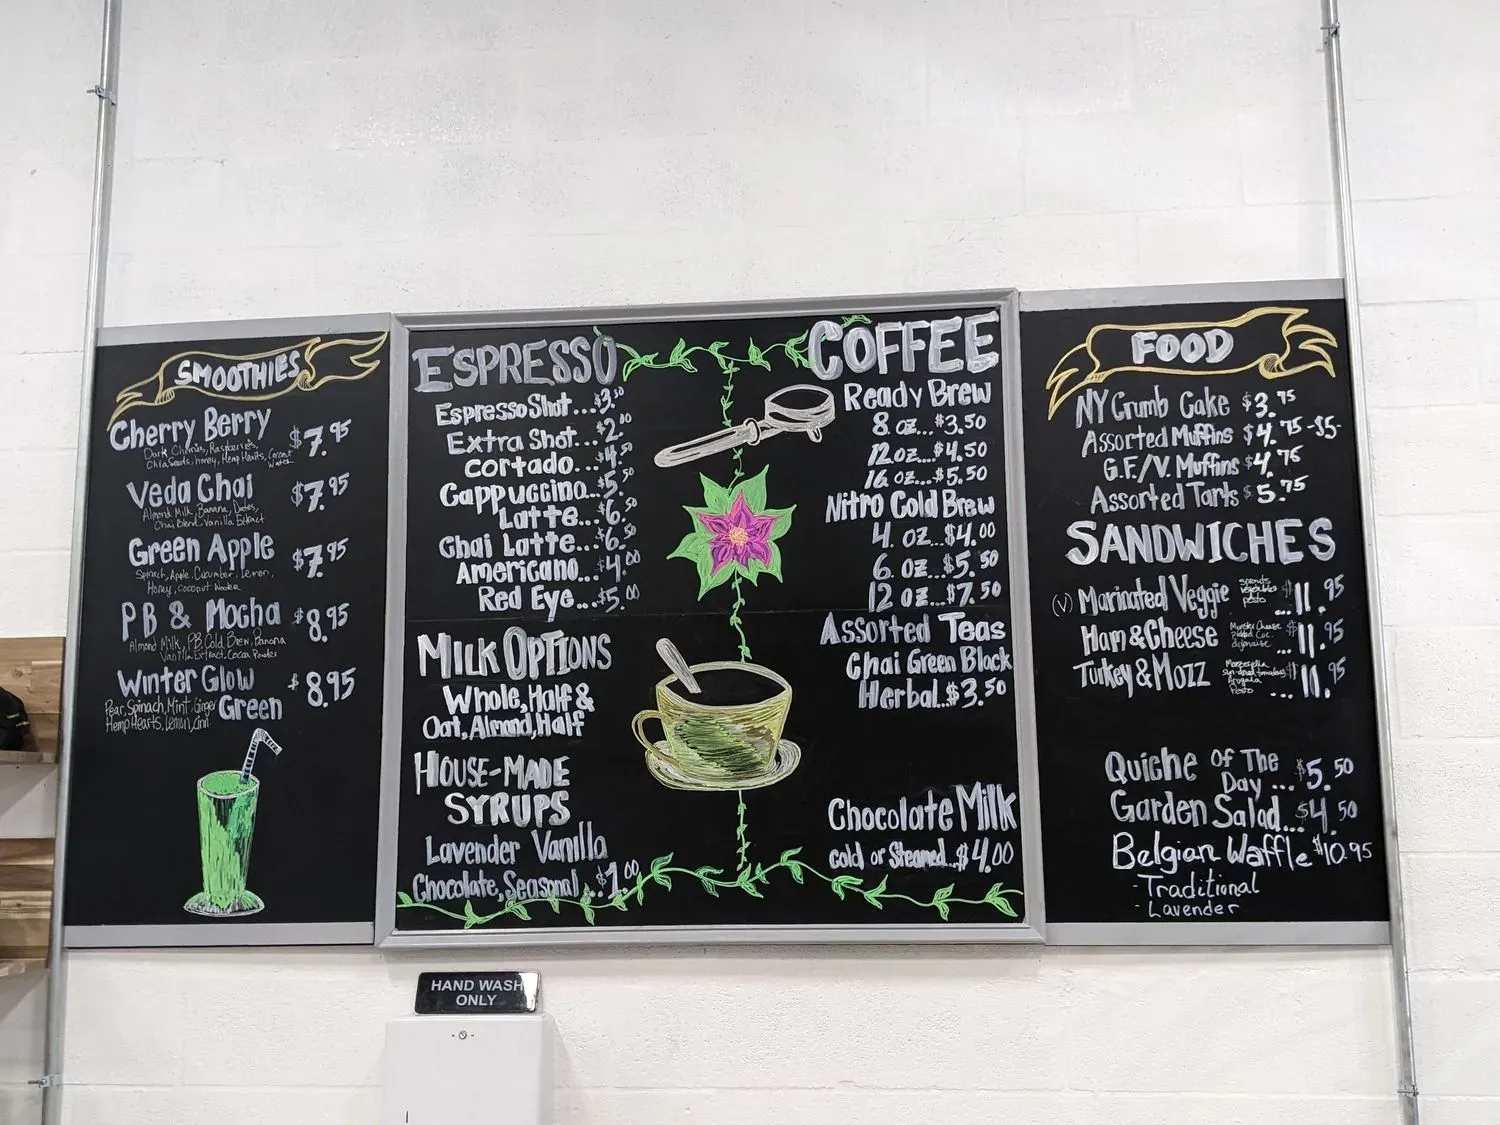 SMOOTHIES
Cherry Berry $7.95
Dark Cherries, Raspberries,
Chia Seeds, honey, Hemp Hearts, Coconut
Water
Veda Chai $7.95
Almond Milk, Banana, Dates,
Chai Blend, Vanilla Extract
Green Apple $7.95
Spinach, Apple, Cucumber, Lemon,
Honey, Coconut Water
PB & Mocha $8.95
Almond Milk, PB, Cold Brew, Banana
Vanilla Extract, Cocoa Powder
Winter Glow $8.95
Green
Pear, Spinach, Mint, Ginger
Hemp Hearts, Lemon,
ESPRESSO
Espresso Shot...$3.50
Extra Shot...$2.00
Cortado...$4.50
Cappuccino...$5.50
Latte...$6.50
Chai Latte...$6.50
Americano...$4.00
Red Eye...$5.00
MILK OPTIONS
Whole, Half &
Oat, Almond, Half
HOUSE-MADE
SYRUPS
Lavender Vanilla
Chocolate, Seasonal...$1.00
COFFEE
Ready Brew
8 oz...$3.50
12 oz...$4.50
16 oz...$5.50
Nitro Cold Brew
4 oz...$4.00
6 oz...$5.50
12 oz...$7.50
Assorted Teas
Chai Green Black
Herbal..$3.50
Chocolate Milk
Cold or Steamed...$4.00
FOOD
NY Crumb Cake $3.75
Assorted Muffins $4.75-$5-
G.F./V. Muffins $4.75
Assorted Tarts $5.75
SANDWICHES
(V) Marinated Veggie sprouts vegetables pesto ...$11.95
Ham & Cheese ...$11.95
Turkey & Mozz Mozzarella sun-dried tomatoes Arugula Pesto ...$11.95
Quiche Of The
Day ...$5.50
Garden Salad...$4.50
Belgian Waffle $10.95
- Traditional
- Lavender
HAND WASH
ONLY